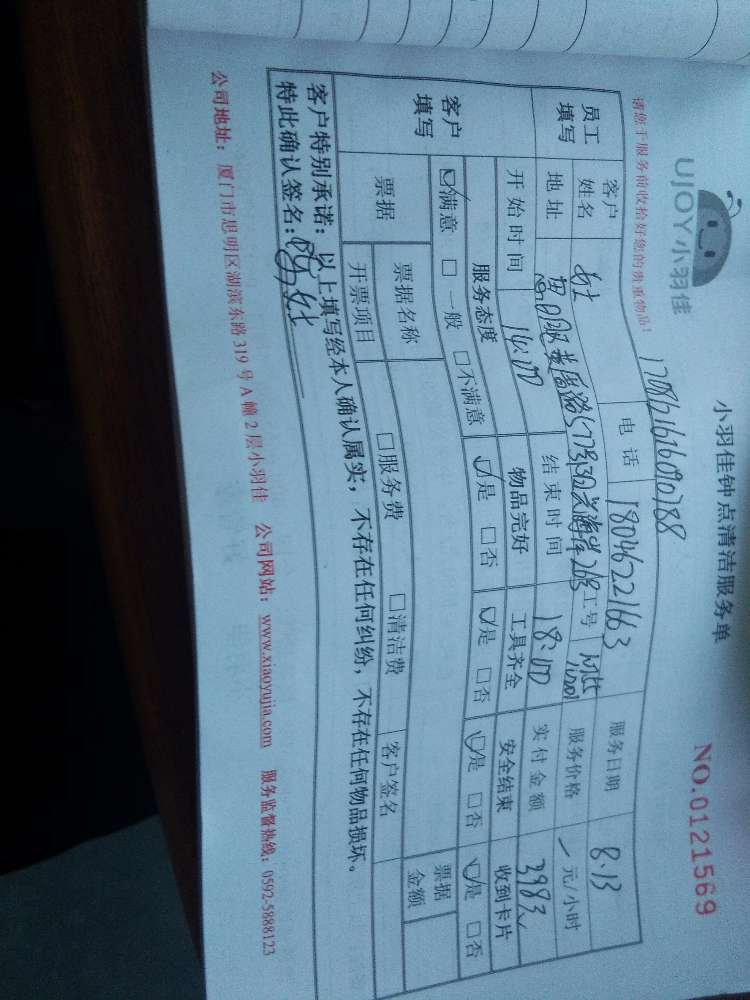 UJOY小羽佳
小羽佳钟点清洁服务单
NO.0121569
请您于服务前收拾好您的贵重物品!
员工填写
客户姓名
电话
18046221663
服务日期
8.13
地址
工号
服务价格
元/小时
开始时间
14:00
结束时间
18:00
实付金额
客户填写
服务态度
物品完好
工具齐全
安全结束
收到卡片
☑满意 □一般 □不满意
☑是 □否
☑是 □否
☑是 □否
☑是 □否
票据
票据名称
□服务费 □清洁费
客户签名
票据金额
开票项目
客户特别承诺:以上填写经本人确认属实,不存在任何纠纷,不存在任何物品损坏。
特此确认签名:
公司地址:厦门市思明区湖滨东路319号A幢2层小羽佳 公司网站:www.xiaoyujia.com 服务监督热线:0592-5888123